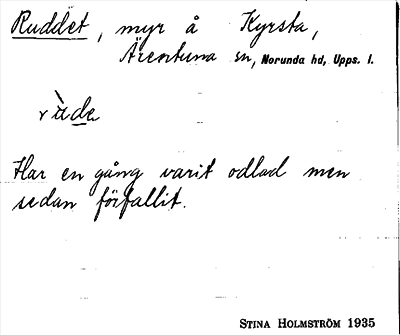 Ruddet, myr å Kyrsta,
Ärentuna sn, Norunda hd, Upps. l.
Har en gång varit odlad men
sedan förfallit.
STINA HOLMSTRÖM 1935